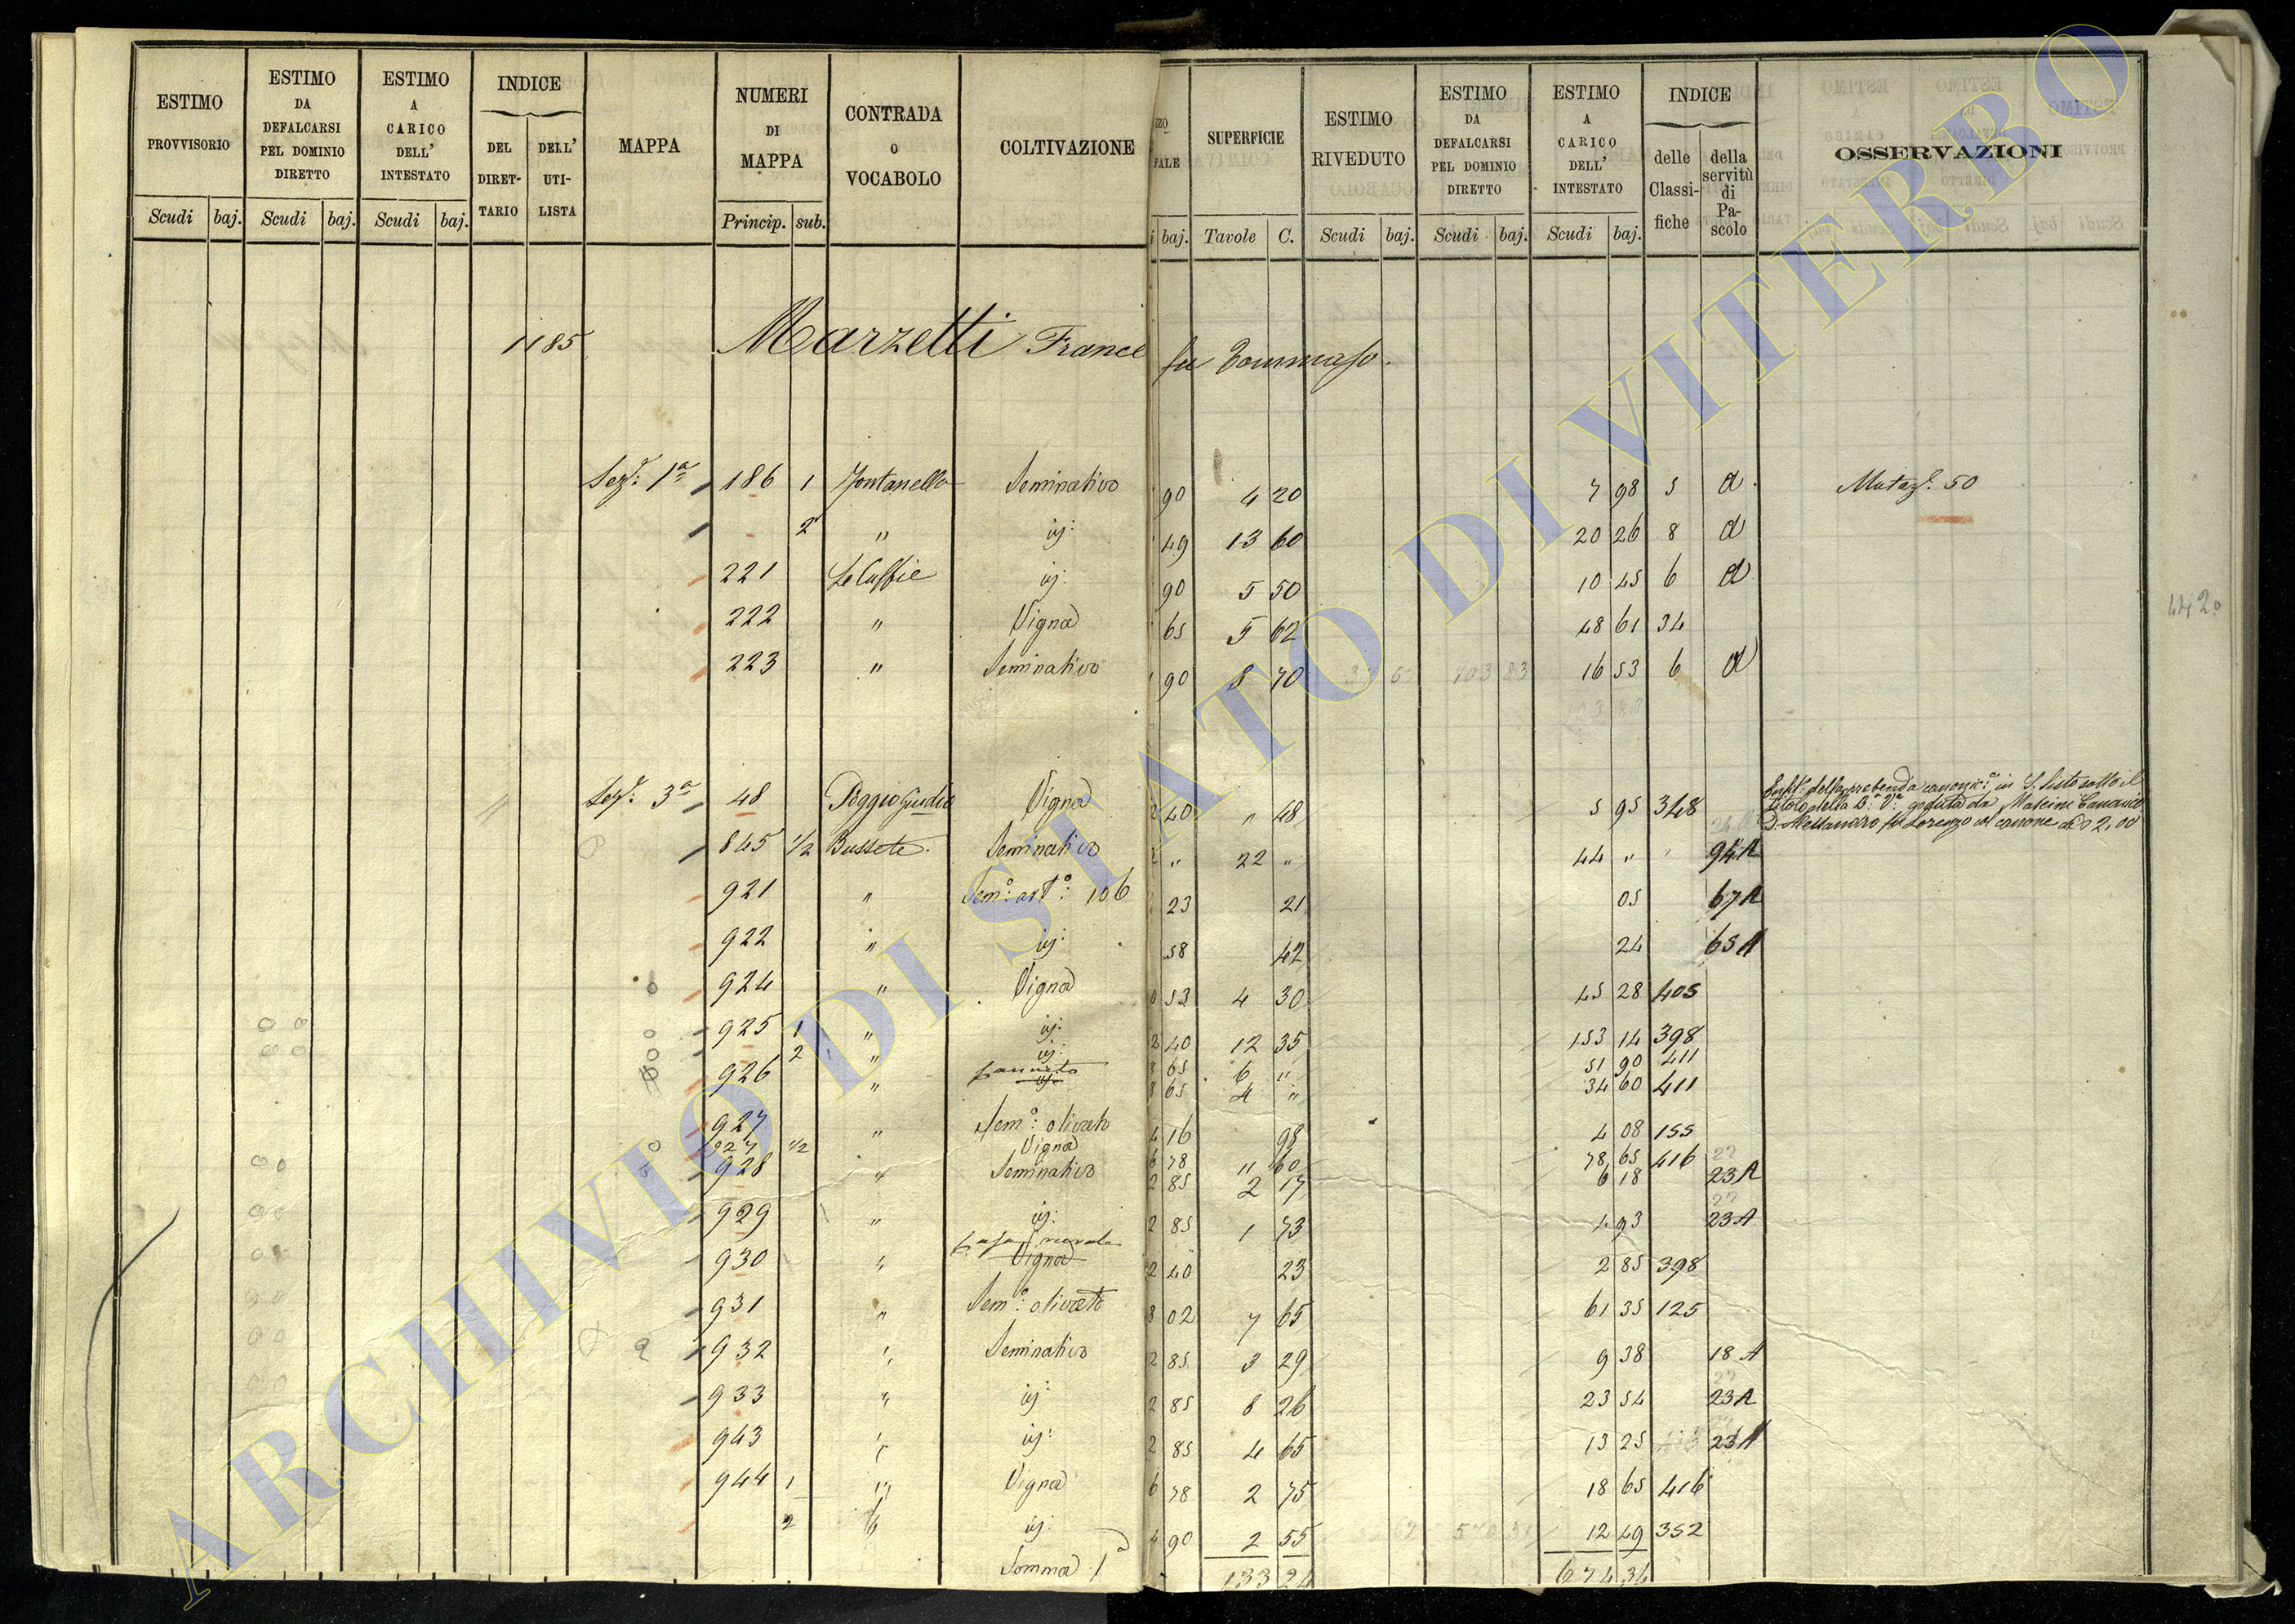 ESTIMO PROVVISORIO | ESTIMO DA DEFALCARSI PEL DOMINIO DIRETTO | ESTIMO A CARICO DELL' INTESTATO | INDICE DEL DIRETTARIO | DELL' UTILISTA | MAPPA | NUMERI DI MAPPA | CONTRADA O VOCABOLO | COLTIVAZIONE | ZZO | FALE | SUPERFICIE | ESTIMO RIVEDUTO | ESTIMO DA DEFALCARSI PEL DOMINIO DIRETTO | ESTIMO A CARICO DELL' INTESTATO | INDICE delle Classifiche | della servitù di Pascolo | OSSERVAZIONI
Scudi | baj. | Scudi | baj. | Scudi | baj. | Princip. | sub. | i | baj. | Tavole | C. | Scudi | baj. | Scudi | baj. | Scudi | baj.
1185 Marzetti France fu Tommaso.
Sezᵉ: 1ª 186 1 Fontanella Seminativo 90 4 20 7 98 5 a Mutazᵉ. 50
2 " id: 49 13 60 20 26 8 a
221 Le Caffie id: 90 5 50 10 45 6 a
222 " Vigna 65 5 62 48 61 34
223 " Seminativo 90 8 70 16 53 6 a
Sezᵉ: 3ª 48 Poggio Giudio Vigna 2 40 " 48 5 95 348
della prebenda canonicᵃ: in S. Sisto sotto il
titolo della B:ᵃ V:ᵉ goduta da Mascini Canonico
D. Alessandro fu Lorenzo col canone di 2,00
845 1/2 Bussete. Seminativo 2 " 22 " 44 " 94 A
921 " Semº: artº: 106 23 21 05 67 A
922 " id: 58 42 24 65 A
924 " Vigna 0 53 4 30 45 28 405
925 1 " id: 2 40 12 35 153 14 398
2 " id: 8 65 6 " 51 90 411
926 " canneto id: 8 65 4 " 34 60 411
927 " Semº: olivato 4 16 98 4 08 155
927 1/2 Vigna 6 78 11 60 78 65 416
928 " Seminativo 2 85 2 17 6 18 23 A
929 " id: 2 85 1 73 4 93 23 A
930 " casa rurale Vigna 2 40 23 2 85 398
931 " Semº: olivato 8 02 7 65 61 35 125
932 " Seminativo 2 85 3 29 9 38 18 A
933 " id: 2 85 8 26 23 54 23 A
943 " id: 2 85 4 65 13 25 23 A
944 1 " Vigna 6 78 2 75 18 65 416
2 " id: 4 90 2 55 12 49 352
Somma 1ª 133 24 674 34
442
ARCHIVIO DI STATO DI VITERBO